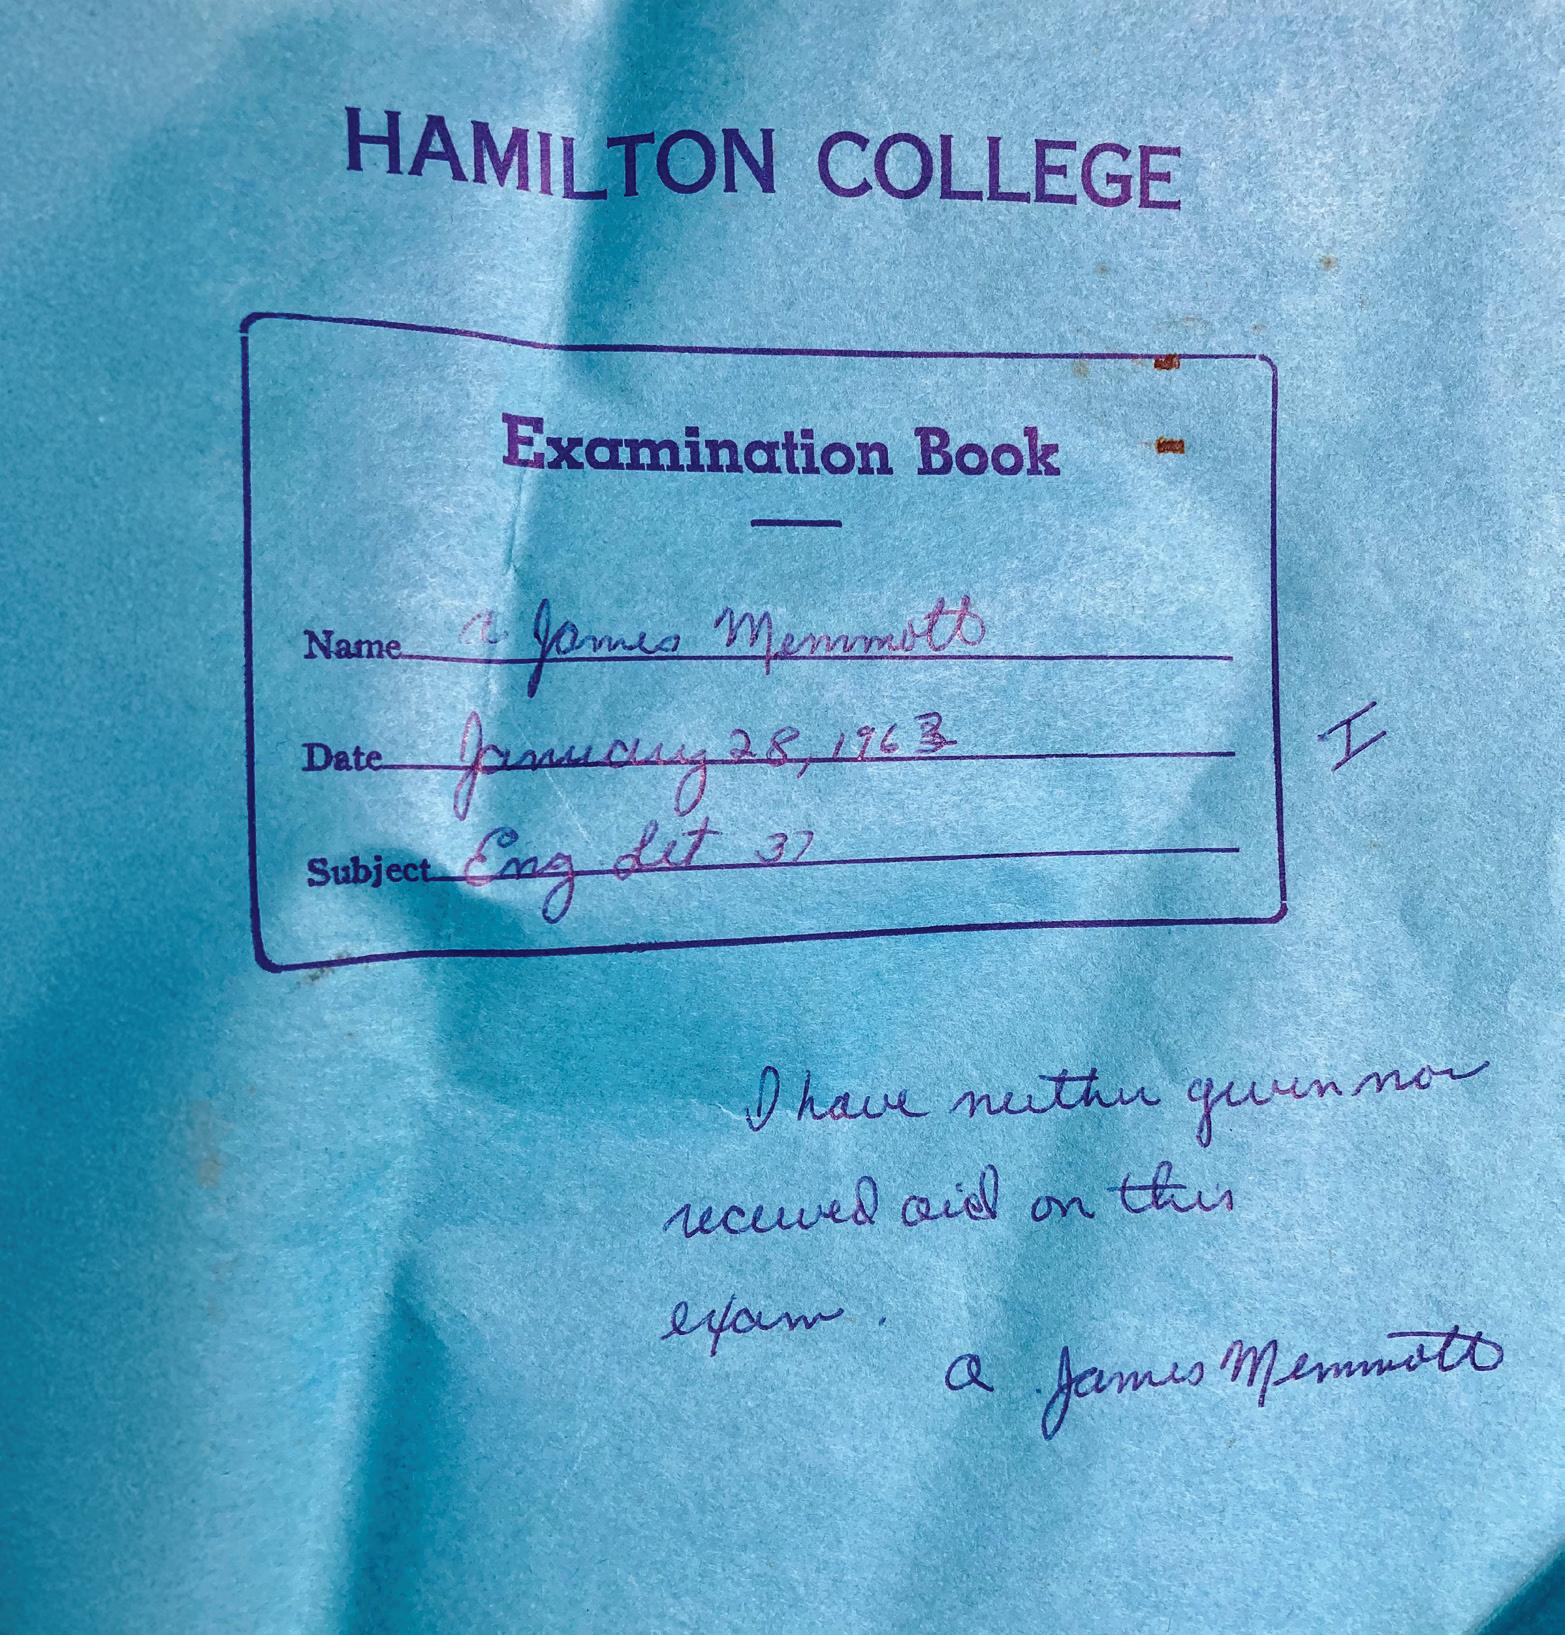 HAMILTON COLLEGE
Examination Book
Name a James Memmott
Date January 28, 1963
Subject Eng Lit 37
I
I have neither given nor
received aid on this
exam.
a James Memmott